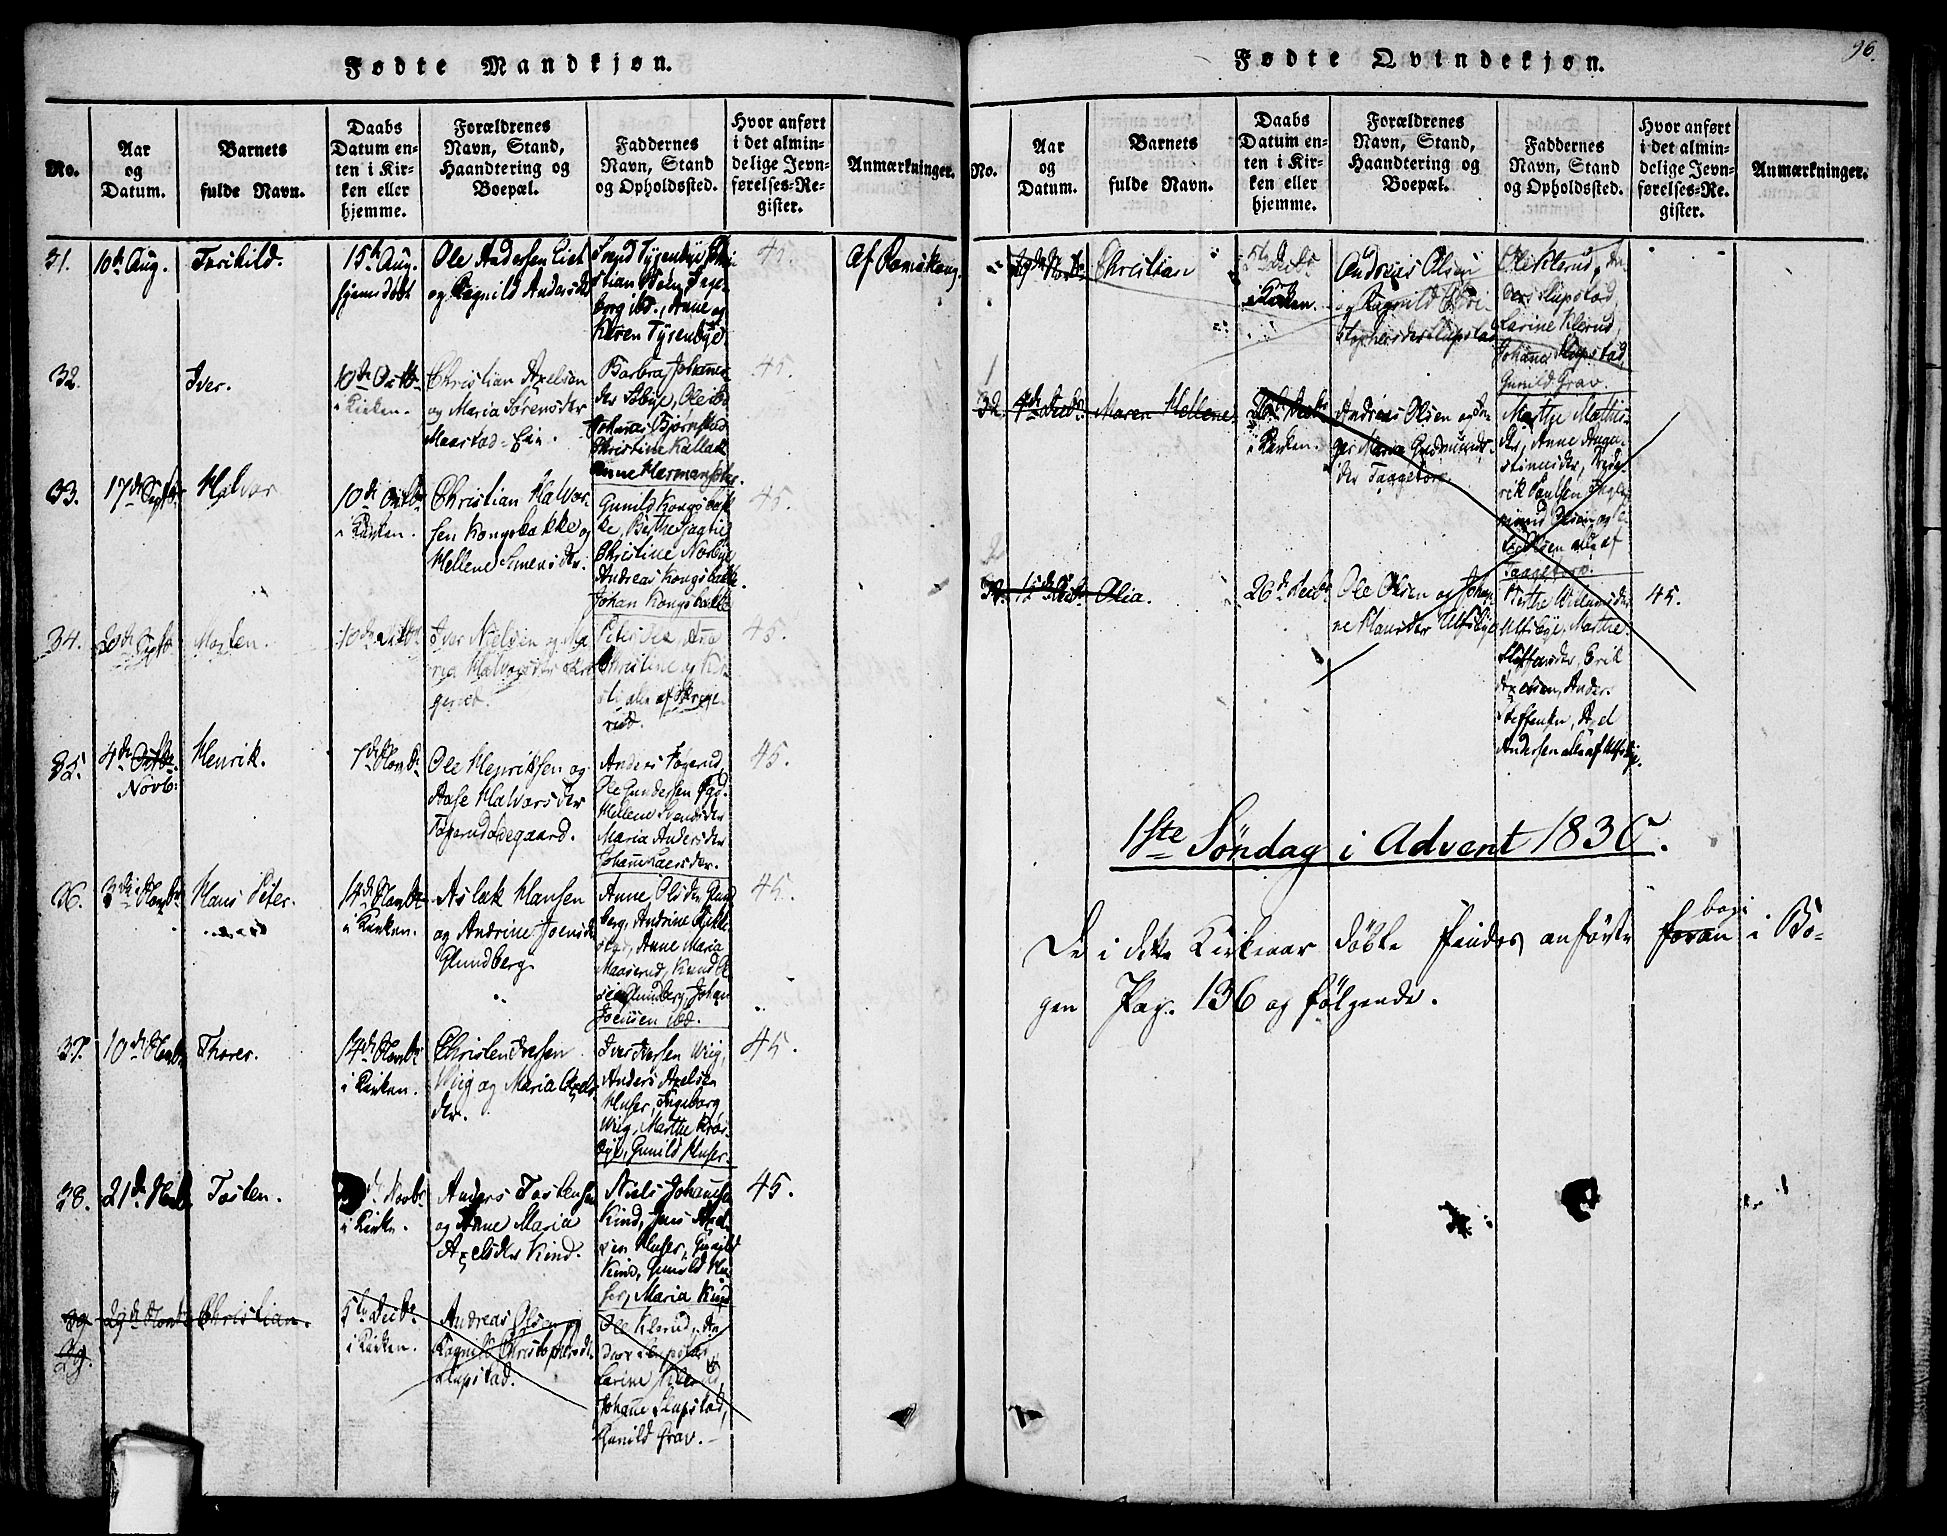 Fødte Mandkjøn.
No.
Aar
og
Datum.
Barnets
fulde Navn.
Daabs
Datum en-
ten i Kir-
ken eller
hjemme.
Forældrenes
Navn, Stand,
Haandtering og
Boepæl.
Faddernes
Navn, Stand
og Opholdssted.
Hvor anført
i det almin-
delige Jevn-
førelses-Re-
gister.
Anmærkninger.
31.
10de Aug.
Torchild.
15de Aug.
hjemdøbt
Ole Andersen
og Ragnild Andersdr
borg ibd., Anne og
Karen Tysenbye
45.
Af Romskoug
32.
Iver.
10de Octb.
i Kirken.
Christian Axelsen
og Maria Sørensder
Maastad-Eie.
Barbra Johannes
der Foßbye, Ole ibd
Johannes Bjørnstad
Christine Kallak
Anne Hermansder.
45.
33.
17de Septbr
Halvor
10de Octbr
i Kirken.
Christian Halvor-
sen Kongsbakke og
Hellene Simensder.
Gunild Kongsbak-
ke, Berthe
Christine Norbye
Andreas Kongsbakke
Johan Kongsbakke
45.
34.
30de Septb
Morten.
10de Octbr
Iver Nielsen og Ma
ria Halvorsder
gerud.
Christine og Kir-
sti alle af
rud.
45.
35.
4de Octbr
Novb.
Henrik.
7de Novbr
Ole Henriksen og
Aase Halvorsder
Tøgerud Ødegaard.
Anders Tøgerud,
Ole Gundersen ibd.
Hellene Svendsder
Maria Andersder
Johanne Larsder.
45.
36.
3die Novbr
Hans Peter.
14de Novbr
i Kirken.
Aslak Hansen
og Andrine Joensdr
Glundberg
Anne Olsder Glund
berg, Andrine
stad, Anne Maria
Maaserud, Knud Ol
sen Glundberg, Johan
Joensen ibd.
45.
37.
10de Novbr
Thorer.
14de Novbr
i Kirken.
Christen Iversen
Wiig og Maria Axels
der.
Iver Iversen Wiig,
Anders Axelsen
Huser, Ingeborg
Wiig, Marthe Krøs-
bye, Gunild Huser.
45.
38.
21de Novb
Tosten.
de Novbr
i Kirke.
Anders Tostensen
og Anne Maria
Axelsder Kind.
Niels Johannesen
Kind, Jens Axel-
sen Huser, Gunild
Kind, Gunild Hu-
ser, Maria Kind
45.
39
39.
29de Novbr
Christian.
5te Decbr
i Kirken.
Andreas Olsen
Ragnild Christophersdr
Slupstad.
Ole Klerud, An
ders Slupstad,
Karine Klerud,
Johanne Slupstad,
Gunild Grav.
Fødte Qvindekjøn.
96.
No.
Aar
og
Datum.
Barnets
fulde Navn.
Daabs
Datum en-
ten i Kir-
ken eller
hjemme.
Forældrenes
Navn, Stand,
Haandtering og
Boepæl.
Faddernes
Navn, Stand
og Opholdssted.
Hvor anført
i det almin-
delige Jevn-
førelses-Re-
gister.
Anmærkninger.
29de Novbr
Christian
5te Decbr
i Kirken.
Andreas Olsen
og Ragnild Chri-
stophersder Slupstad
Ole Klerud, An-
ders Slupstad,
Karine Klerud,
Johanne Slupstad
Gunild Grav.
1
32
4de Decbr
Maren Hellene
26de Decbr
i Kirken.
Andreas Olsen og In-
ger Maria Gudmunds-
der Taagetorp.
Marthe Mathis-
der, Anne Augu-
stinusder, Frede-
rik Paulsen
mund Olsen og
Olsen alle af
Taagetorp.
2
15de Decbr
Olia.
26de Decbr
Ole Olsen og Johan-
ne Hansder Ulfsbye
Berthe
Ulfsbye, Marthe
Steffensder, Erik
Axelsen, Anders
Steffensen, Axel
Andersen alle af Ulfsbye.
45.
1ste Søndag i Advent 1830.
De i dette Kirkeaar døbte findes anførte foran bag i Bo-
gen Pag. 136 og følgende.